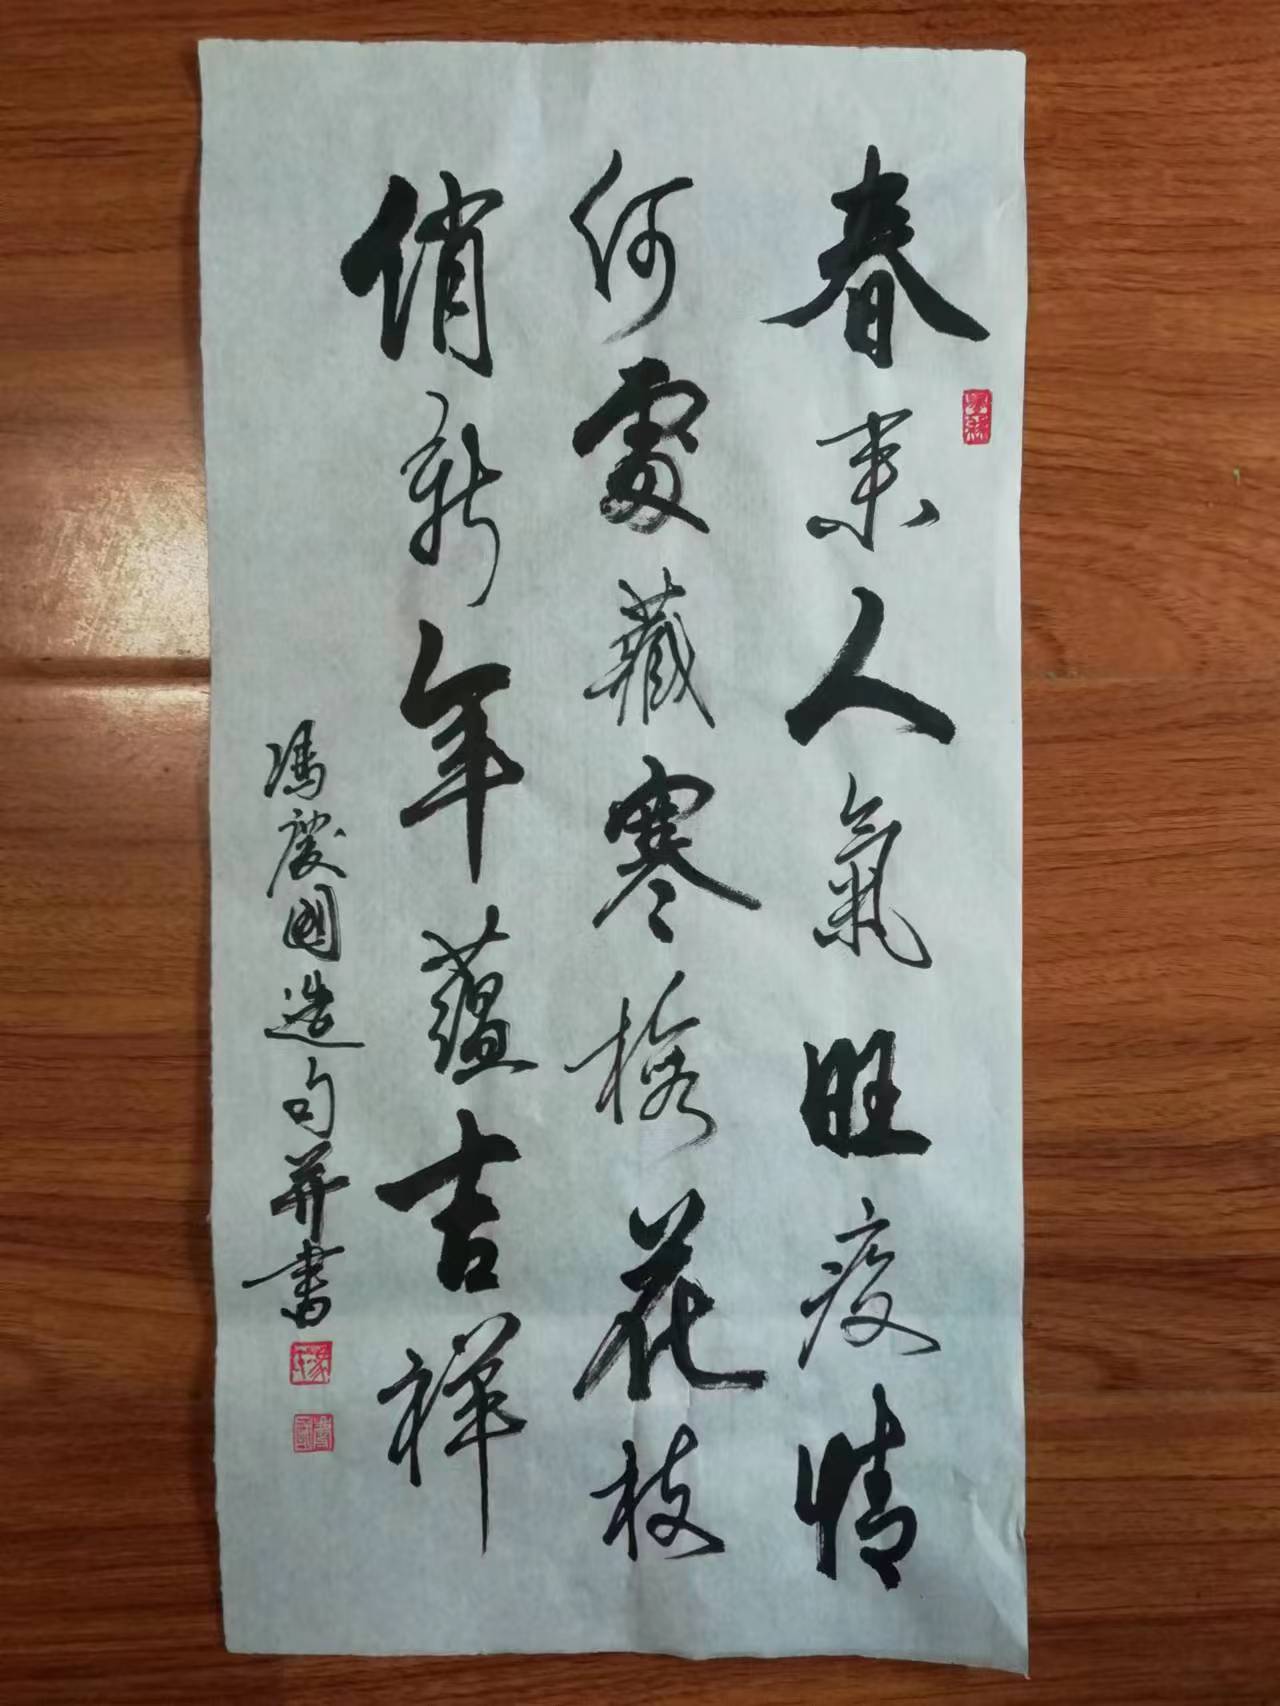 春来人氣旺疫情
何處藏寒梅花枝
俏新年蕴吉祥
馮慶國造句并書